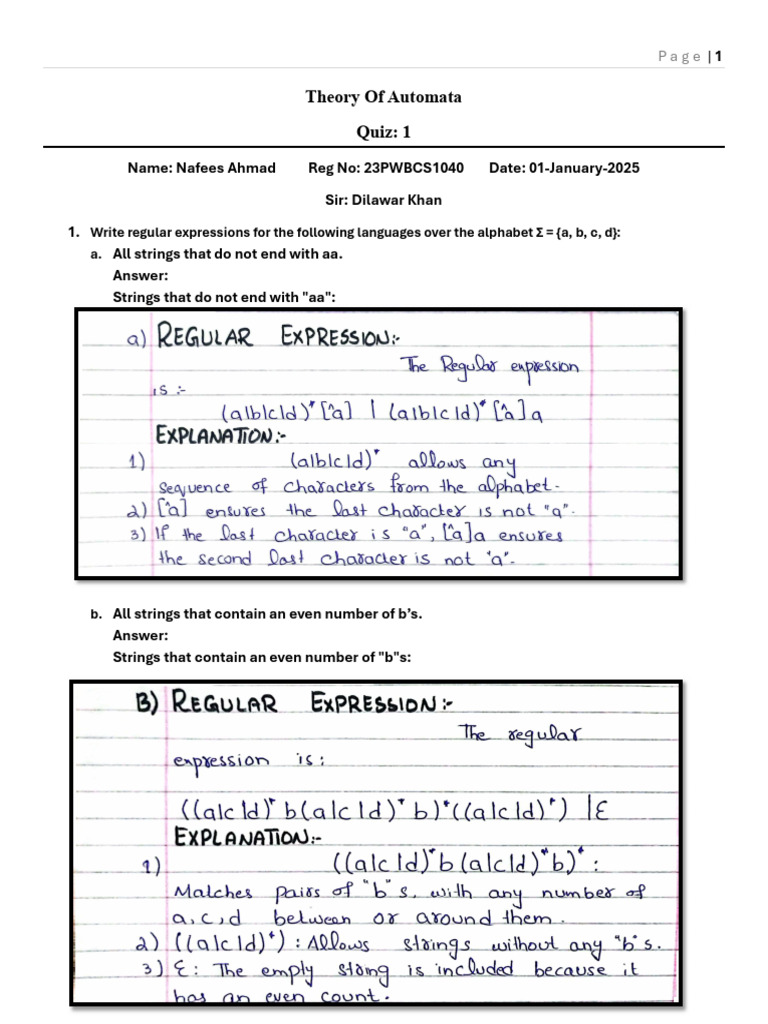 Page | 1
Theory Of Automata
Quiz: 1
Name: Nafees Ahmad Reg No: 23PWBCS1040 Date: 01-January-2025
Sir: Dilawar Khan
1. Write regular expressions for the following languages over the alphabet Σ = {a, b, c, d}:
a. All strings that do not end with aa.
Answer:
Strings that do not end with "aa":
a) REGULAR EXPRESSION:-
The Regular expression
is :-
(a|b|c|d)* [^a] | (a|b|c|d)* [^a] a
EXPLANATION:-
1) (a|b|c|d)* allows any
sequence of characters from the alphabet.
2) [^a] ensures the last character is not "a".
3) If the last character is "a", [^a]a ensures
the second last character is not "a".
b. All strings that contain an even number of b’s.
Answer:
Strings that contain an even number of "b"s:
B) REGULAR EXPRESSION:-
The regular
expression is:
((a|c|d)* b(a|c|d)* b)*((a|c|d)*) |ε
EXPLANATION:-
1) ((a|c|d)*b (a|c|d)*b)* :
Matches pairs of "b"s, with any number of
a, c, d between or around them.
2) ((a|c|d)*) : Allows strings without any "b"s.
3) ε: The empty string is included because it
has an even count.